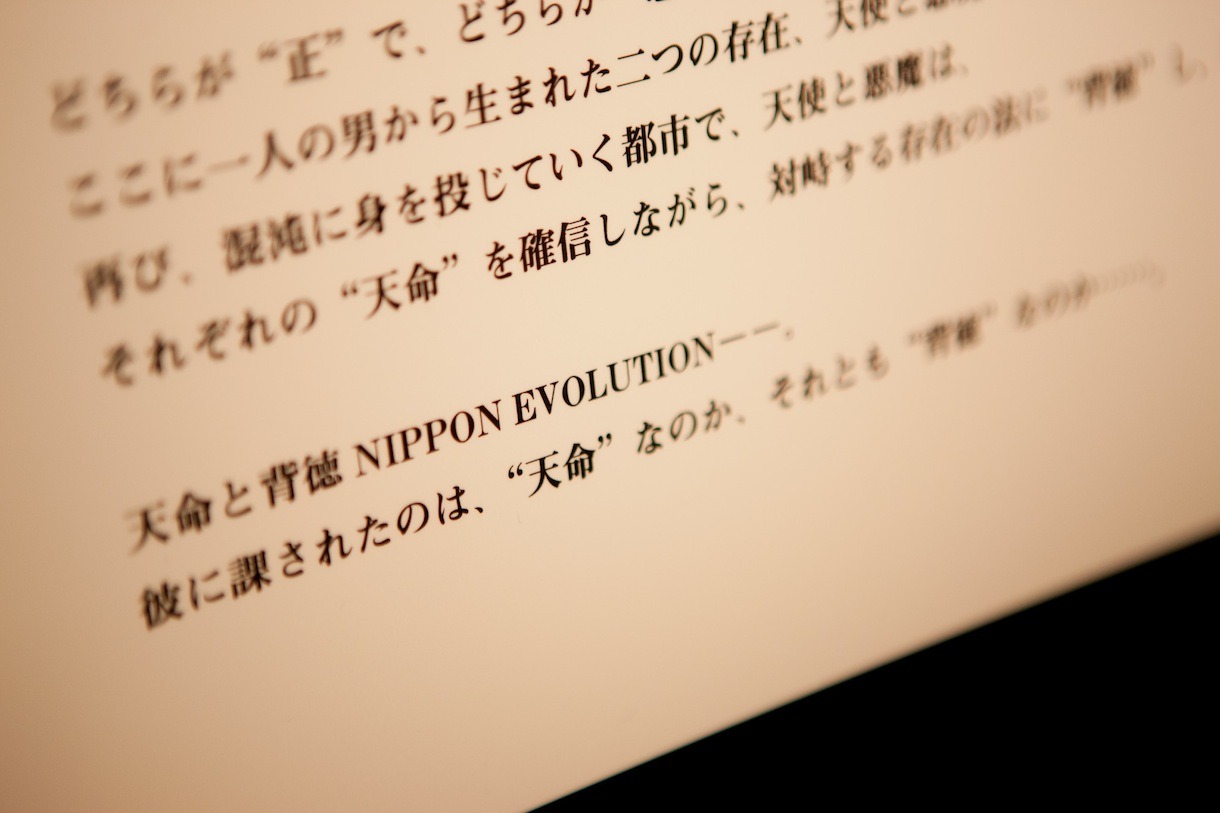 どちらが“正”で、どちらが“
ここに一人の男から生まれた二つの存在、天使と悪
再び、混沌に身を投じていく都市で、天使と悪魔は、
それぞれの“天命”を確信しながら、対峙する存在の法に“背徳”し、
天命と背徳 NIPPON EVOLUTION——。
彼に課されたのは、“天命”なのか、それとも“背徳”なのか……。